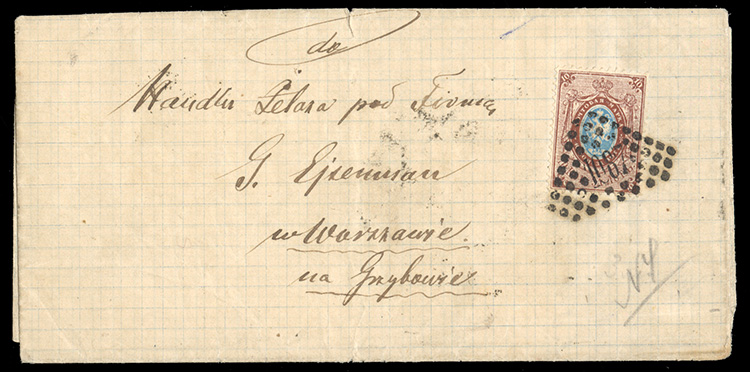 do
Handlu Żelaza pod Firmą
G. Ejzenman
w Warszawie
na Grzybowie
10
N4